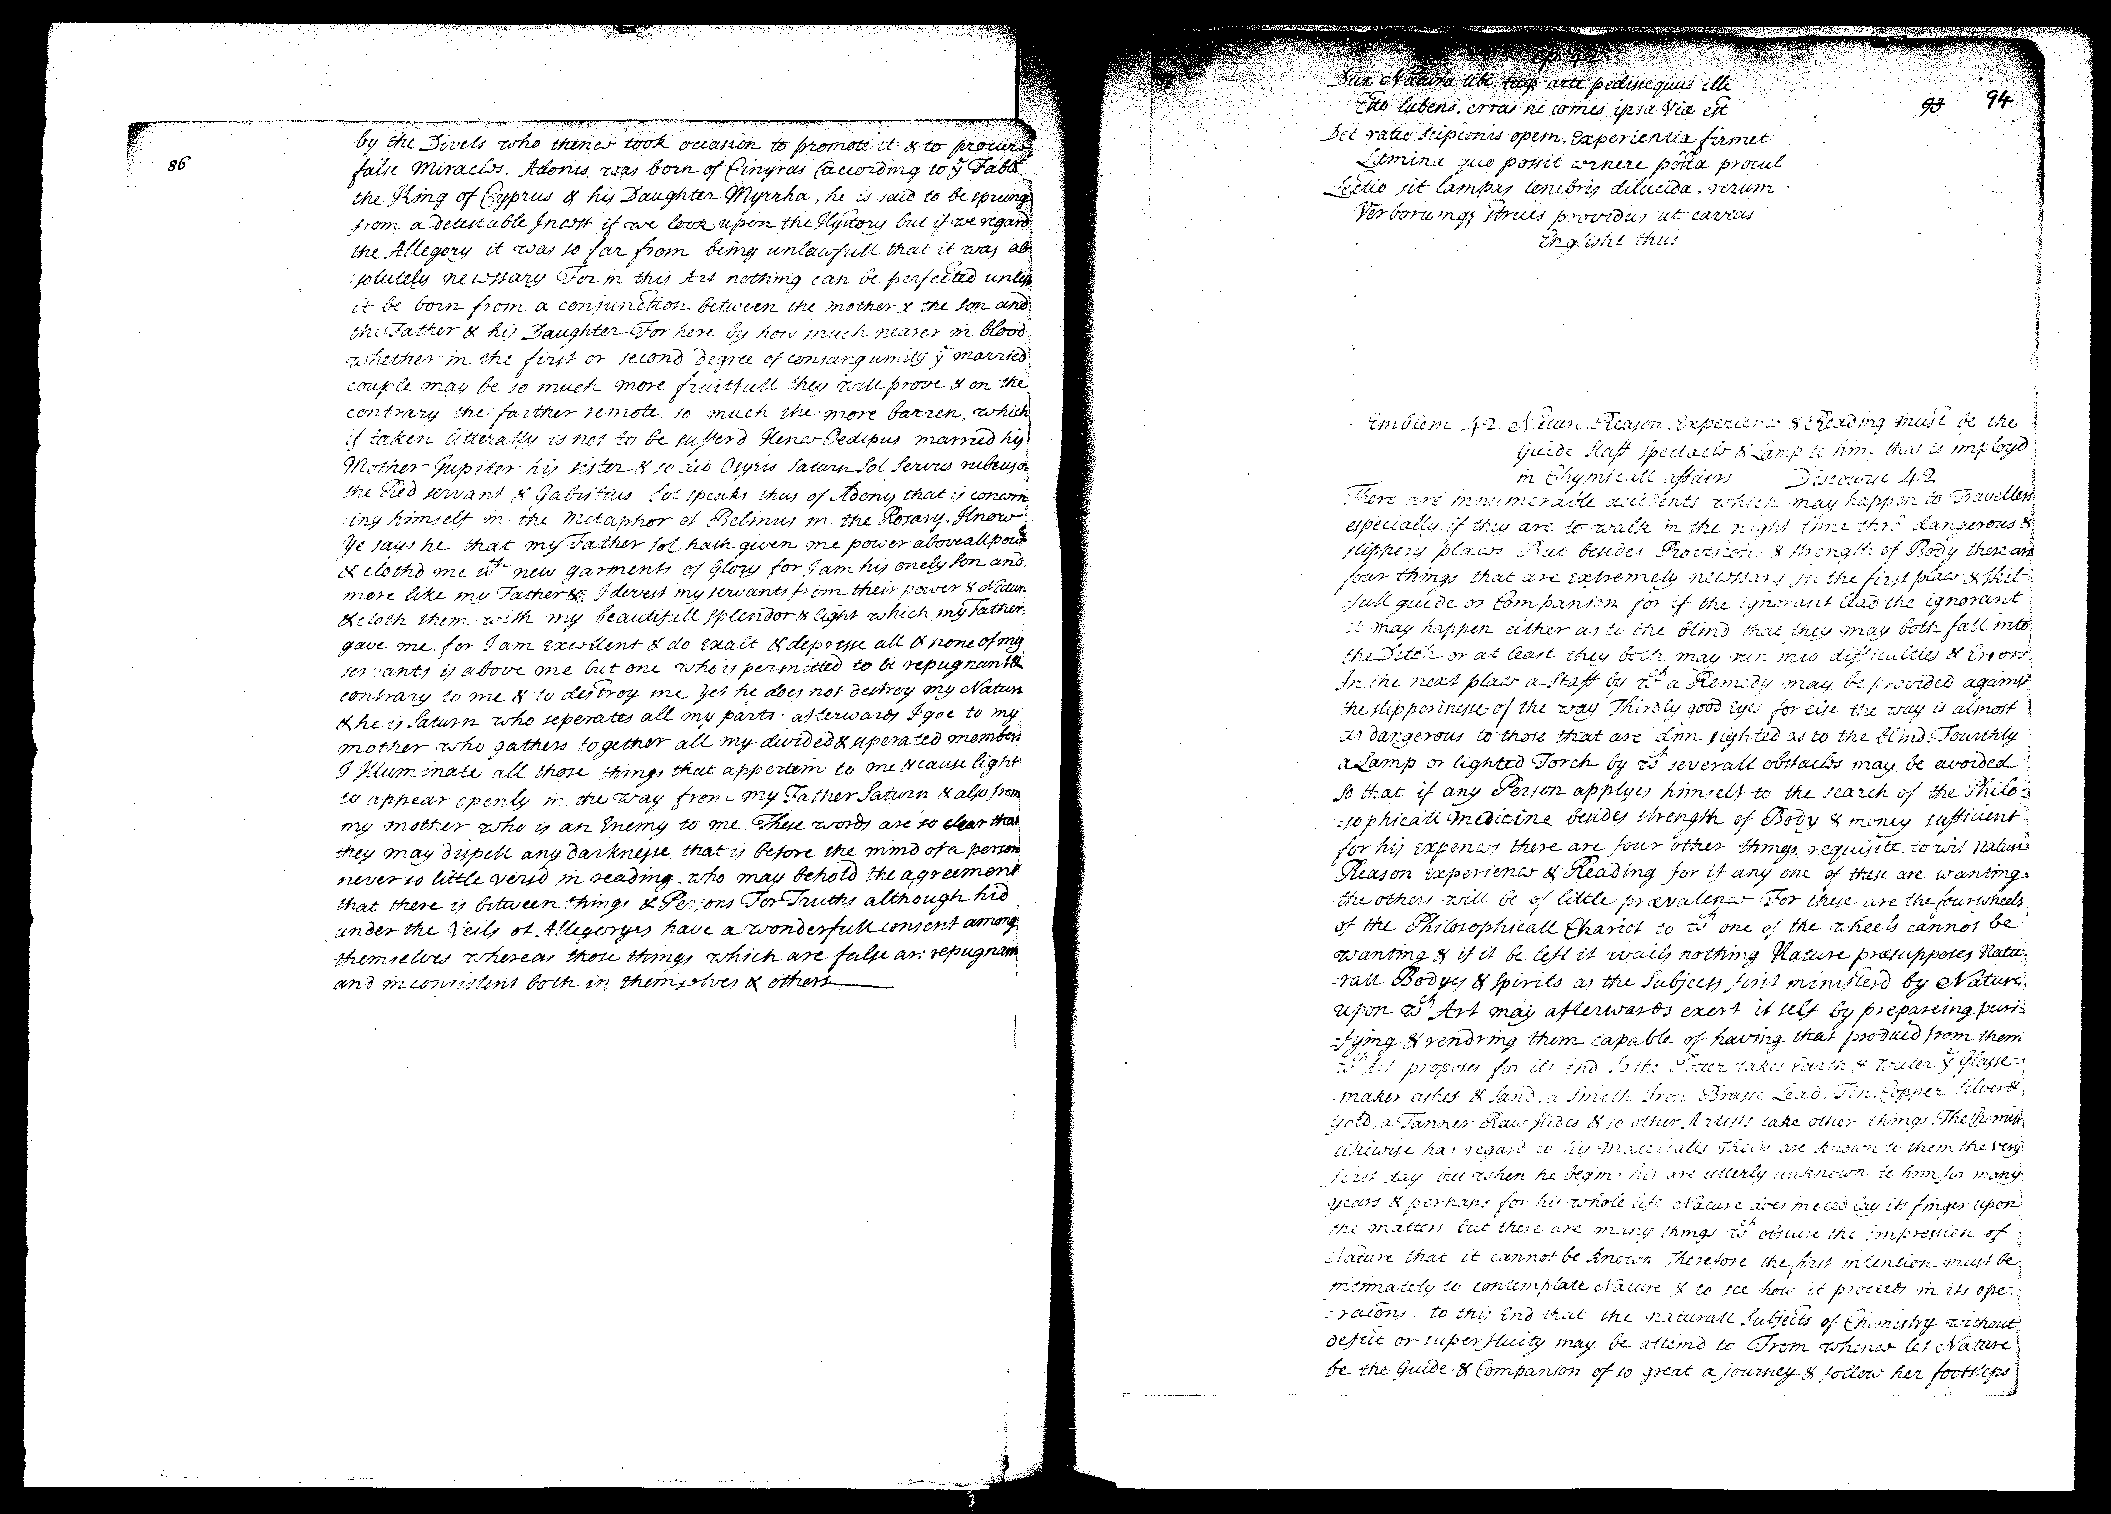 86
by the Divels who thence took occasion to promote it & to procure
false Miracles. Adonis was born of Cinyras (according to yͤ Fable
the King of Cyprus & his Daughter Myrrha, he is said to be sprung
from a detestable Incest if we look upon the History but if we regard
the Allegory it was so far from being unlawfull that it was ab
:solutely necessary For in this Art nothing can be perfected unless
it be born from a conjunction between the mother & the son and
the Father & his Daughter For here by how much nearer in blood
whether in the first or second degree of consanguinity yͤ married
couple may be so much more fruitfull they will prove & on the
contrary the farther remote so much the more barren, which
if taken litterally is not to be sufferd Hence Oedipus married his
Mother Jupiter his sister & so did Osyris Saturn Sol Servus rubeus or
the Red servant & Gabritius Sol speaks thus of Adonis that is concern
:ing himself in the Metaphor of Belinus in the Rosary. Know
Ye says he that my Father Sol hath given me power above all power
& clothd me wͭͪ new garments of Glory for I am his onely Son and
more like my Father & I devest my servants from their power & Nature
& cloth them with my beautifull splendor & light which my Father
gave me for I am Excellent & do exalt & depresse all & none of my
servants is above me but one who is permitted to be repugnant &
contrary to me & to destroy me yet he does not destroy my Nature
& he is Saturn who seperates all my parts afterwards I goe to my
mother who gathers together all my divided & seperated members
I Illuminate all those things that appertein to me & cause light
to appear openly in the way from my Father Saturn & also from
my mother who is an Enemy to me These words are so clear that
they may dispell any darknesse that is before the mind of a person
never so little versd in reading who may behold the agreement
that there is between things & Persons For Truths although hid
under the Veils of Allegoryes have a wonderfull consent among
themselves whereas those things which are false are repugnant
and inconsistent both in themselves & others
93 94
Dux Natura tibi tuqꝫ arte pedisequus illi
Esto lubens, erras ni comes ipsa Viæ est
Det ratio scipionis opem, Experientia firmet
Lumina quo possit cernere posta procul
Lectio sit lampas tenebris dilucida, rerum
Verborumqꝫ strues providus ut caveas
Englisht thus
Emblem 42 Nature Reason Experience & Reading must be the
Guide staff spectacles & Lamp to him that is imployd
in Chymicall affairs Discourse 42
There are innumerable accidents which may happen to Travellers
especially if they are to walk in the night time thro dangerous &
slippery places But besides Provision & strength of Body there are
four things that are extremely necessary in the first place & skil
:full guide or Companion for if the ignorant lead the ignorant
it may happen either as to the blind that they may both fall into
the Ditch or at least they both may run into difficulties & Errors
In the next place a Staff by wͨͪ a Remedy may be provided against
the slipperinesse of the way Thirdly good eyes for else the way is almost
as dangerous to those that are dim sighted as to the blind: Fourthly
a Lamp or lighted Torch by wͨͪ severall obstacles may be avoided
so that if any Person applyes himself to the search of the Philo:
:sophicall Medicine besides strength of Body & money sufficient
for his expences there are four other things requisite to wit Nature
Reason Experience & Reading for if any one of these are wanting
the others will be of little prævalence For these are the four wheels
of the Philosophicall Chariot to wͨͪ one of the wheels cannot be
wanting & if it be left it vails nothing Nature præsupposes Natu
:rall Bodyes & Spirits as the Subjects first ministerd by Nature
upon wͨͪ Art may afterwards exert it self by prepareing puri:
:fying & rendring them capable of having that producd from them
wͨͪ Art proposes for its End So the Potter takes Earth & water yͤ Glasse
maker ashes & sand, a Smith Iron Brasse Lead Tin Copper Silver &
gold, a Tanner Raw Hides & so other Artists take other things. The Chymist
likewise has regard to his Materialls Theirs are known to them the very
first day but when he begins his are utterly unknown to him for many
years & perhaps for his whole life Nature does indeed lay its finger upon
the matters but there are many things wͨͪ obscure the Impression of
Nature that it cannot be known Therefore the first intention must be
intimately to contemplate Nature & to see how it proceeds in its ope:
:rations to this End that the naturall Subjects of Chymistry without
defect or superfluity may be attaind to From whence let Nature
be the Guide & Companion of so great a journey & follow her footsteps